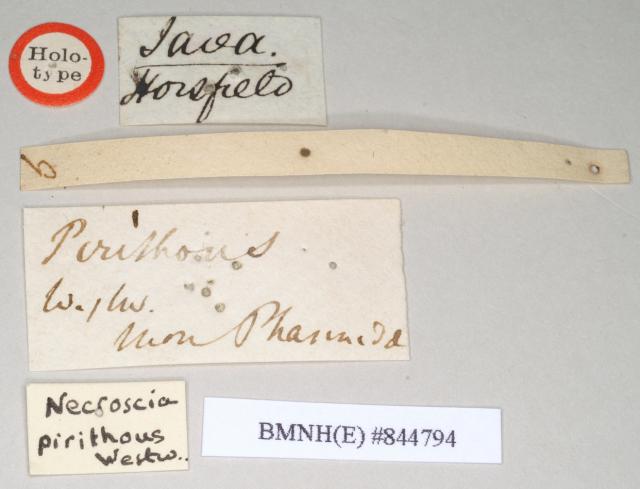 Holo-
type
Java.
Horsfield
b
Pirithous
Westw.
Mon Phasmida
Necroscia
pirithous
Westw..
BMNH(E) #844794